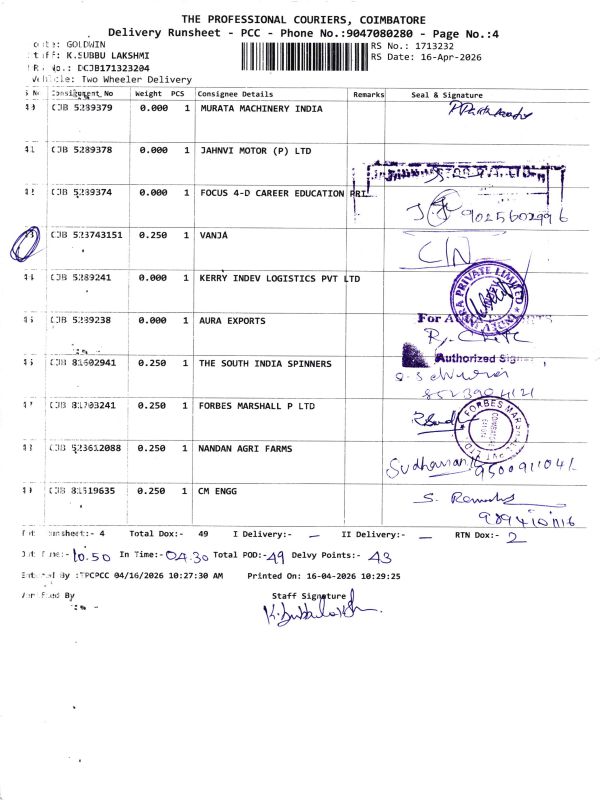 THE PROFESSIONAL COURIERS, COIMBATORE
Delivery Runsheet - PCC - Phone No.:9047080280 - Page No.:4
GOLDWIN
RS No.: 1713232
K.SUBBU LAKSHMI
RS Date: 16-Apr-2026
No.: DCJB171323204
Two Wheeler Delivery
No Consignment No Weight PCS Consignee Details Remarks Seal & Signature
CJB 5289379 0.000 1 MURATA MACHINERY INDIA
41 CJB 5289378 0.000 1 JAHNVI MOTOR (P) LTD
CJB 5289374 0.000 1 FOCUS 4-D CAREER EDUCATION PRI
9025602996
CJB 523743151 0.250 1 VANJA
44 CJB 5289241 0.000 1 KERRY INDEV LOGISTICS PVT LTD
PRIVATE LIMITED
CJB 5289238 0.000 1 AURA EXPORTS
For
Authorized
CJB 81602941 0.250 1 THE SOUTH INDIA SPINNERS
8523904121
CJB 81703241 0.250 1 FORBES MARSHALL P LTD
FORBES MARSHALL PVT LTD
COIMBATORE
CJB 523612088 0.250 1 NANDAN AGRI FARMS
Sudhamani
9500911041
CJB 81519635 0.250 1 CM ENGG
S.
Runsheet:- 4 Total Dox:- 49 I Delivery:- - II Delivery:- - RTN Dox:- 2
Out Time:- 10.50 In Time:- 04.30 Total POD:- 49 Delvy Points:- 43
Entered By :TPCPCC 04/16/2026 10:27:30 AM Printed On: 16-04-2026 10:29:25
Verified By Staff Signature